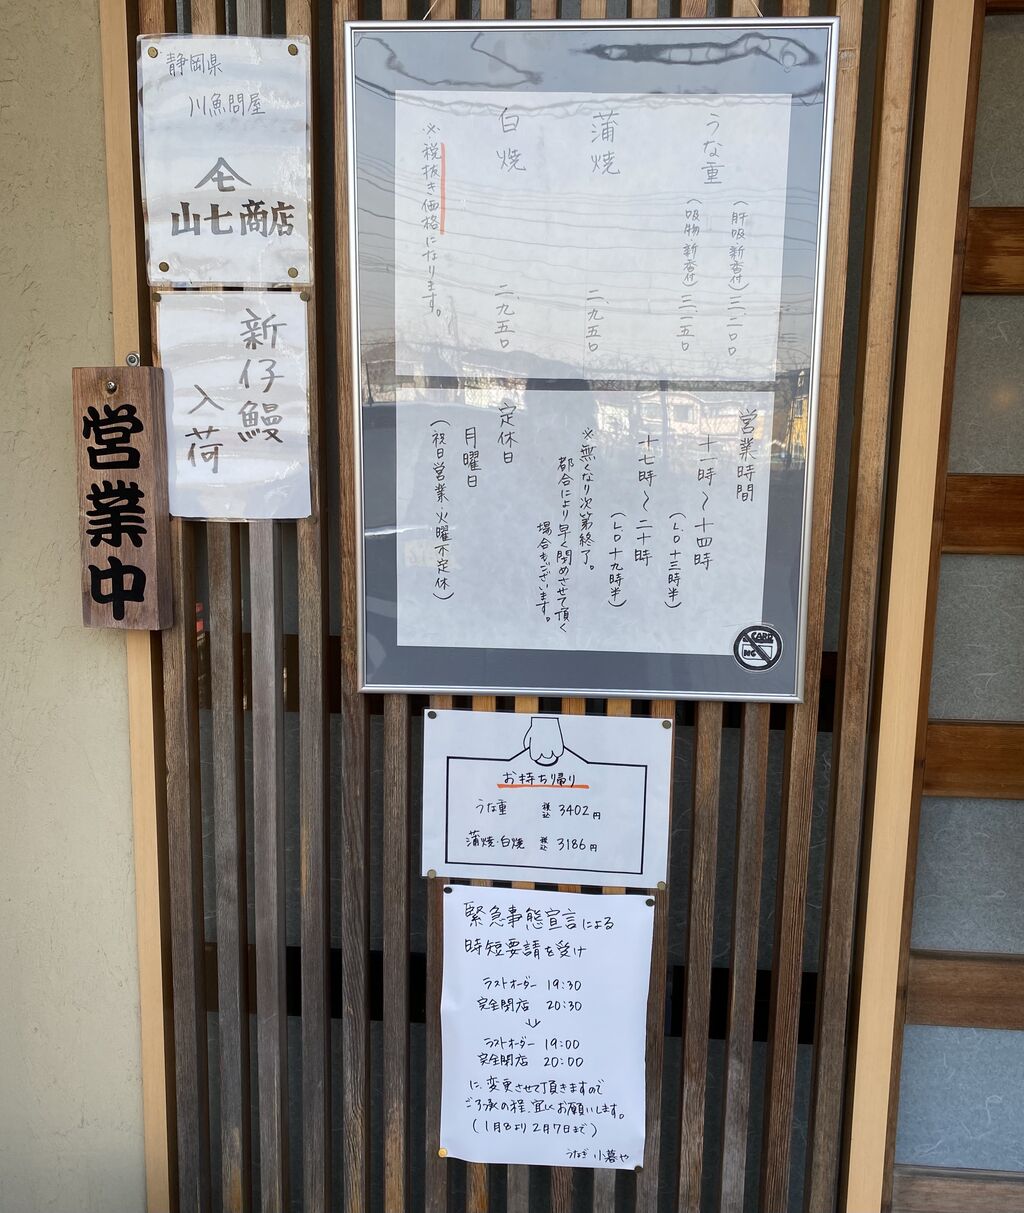 静岡県
川魚問屋
山七商店
新仔鰻
入荷
営業中
うな重
(肝吸・新香付) 三、二〇〇
(吸物・新香付) 三、一五〇
蒲焼 二、九五〇
白焼 二、九五〇
※税抜き価格になります。
営業時間
十一時〜十四時
(L.O 十三時半)
十七時〜二十時
(L.O 十九時半)
※無くなり次第終了。
都合により早く閉めさせて頂く
場合もございます。
定休日
月曜日
(祝日営業・火曜不定休)
CARD
NG
お持ち帰り
うな重 税込 3402円
蒲焼・白焼 税込 3186円
緊急事態宣言による
時短要請を受け
ラストオーダー 19:30
完全閉店 20:30
↓
ラストオーダー 19:00
完全閉店 20:00
に、変更させて頂きますので
ご了承の程、宜しくお願いします。
(1月8より2月7日まで)
うなぎ 小暮や